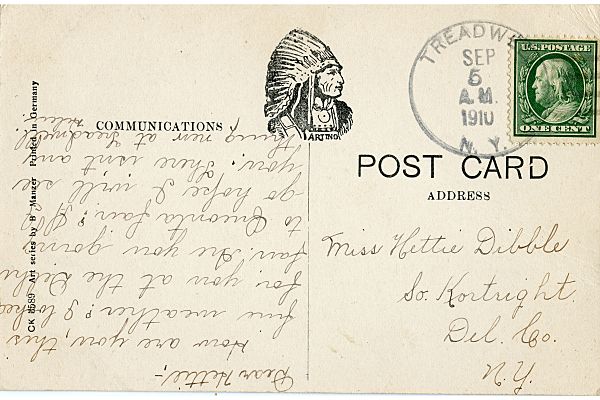 TREADW
SEP
5
A.M.
1910
N. Y.
U.S. POSTAGE
ONE CENT
ART INO
COMMUNICATIONS
POST CARD
ADDRESS
Miss Hettie Dibble
So. Kortright.
Del. Co.
N.Y.
CK 8589 Art series by B Manzer Printed in Germany
Dear Hettie,-
How are you, this
fine weather? I looked
for you at the Delhi
fair. Are you going
to Oneonta fair? If
go hope I will see
you. There isn't any
thing new at Treadwell